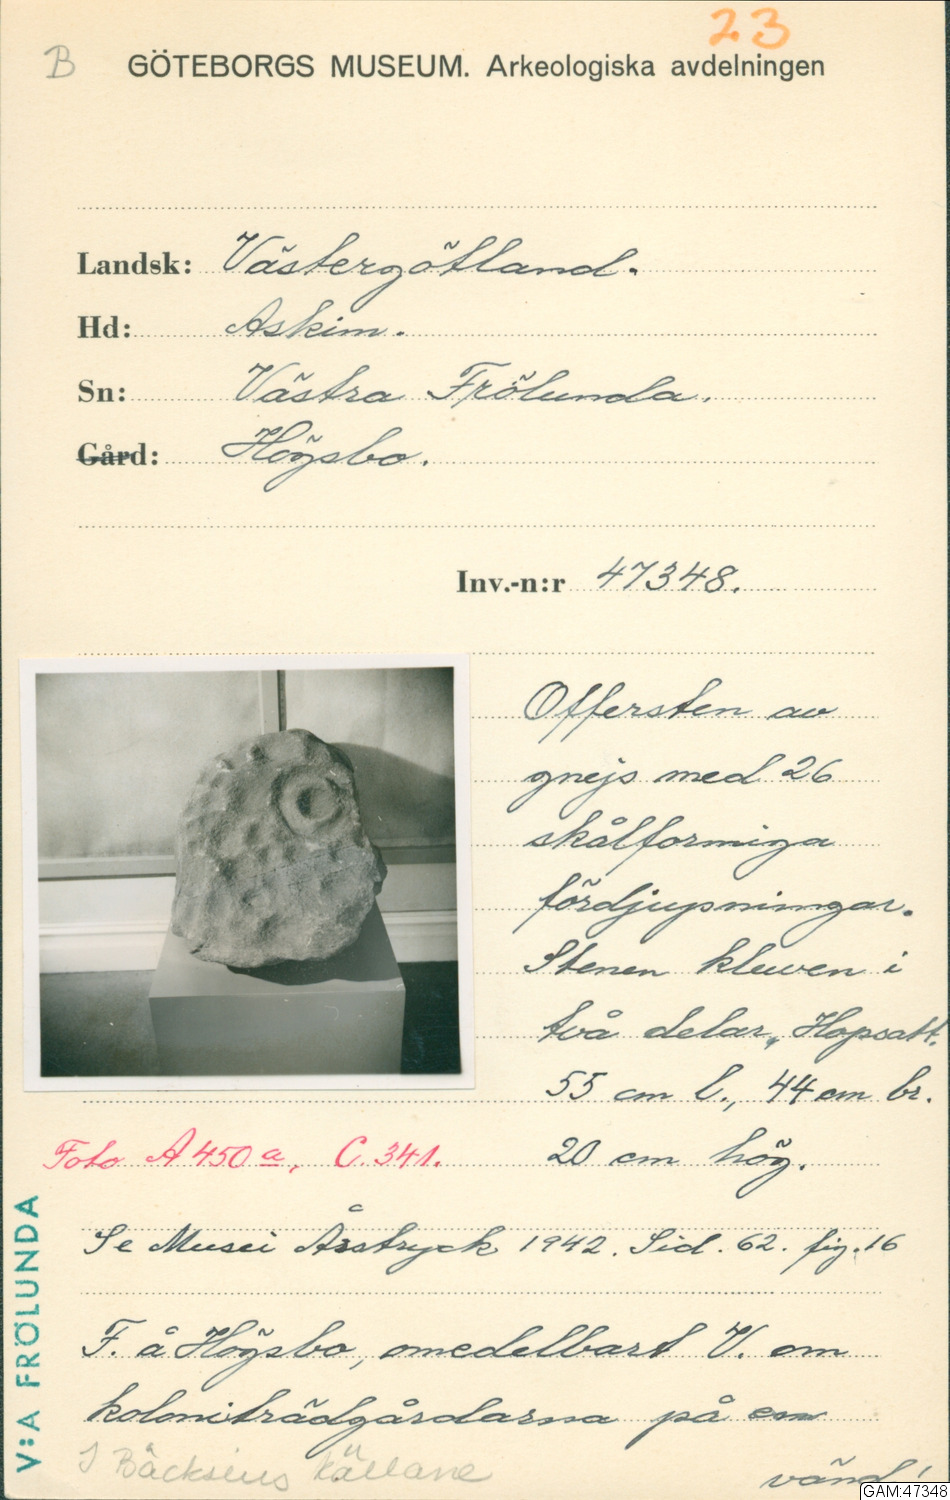 23
B
GÖTEBORGS MUSEUM. Arkeologiska avdelningen
Landsk: Västergötland.
Hd: Askim.
Sn: Västra Frölunda.
Gård: Högsbo.
Inv.-n:r 47348.
Offersten av
gnejs med 26
skålformiga
fördjupningar.
Stenen kluven i
två delar, Hopsatt.
55 cm l., 44 cm br.
20 cm hög.
Foto A 450 a, C. 341.
Se Musei Årstryck 1942. Sid. 62. fig. 16
F. å Högsbo, omedelbart V. om
koloniträdgårdarna på en
I källare
vänd!
V:A FRÖLUNDA
GAM:47348